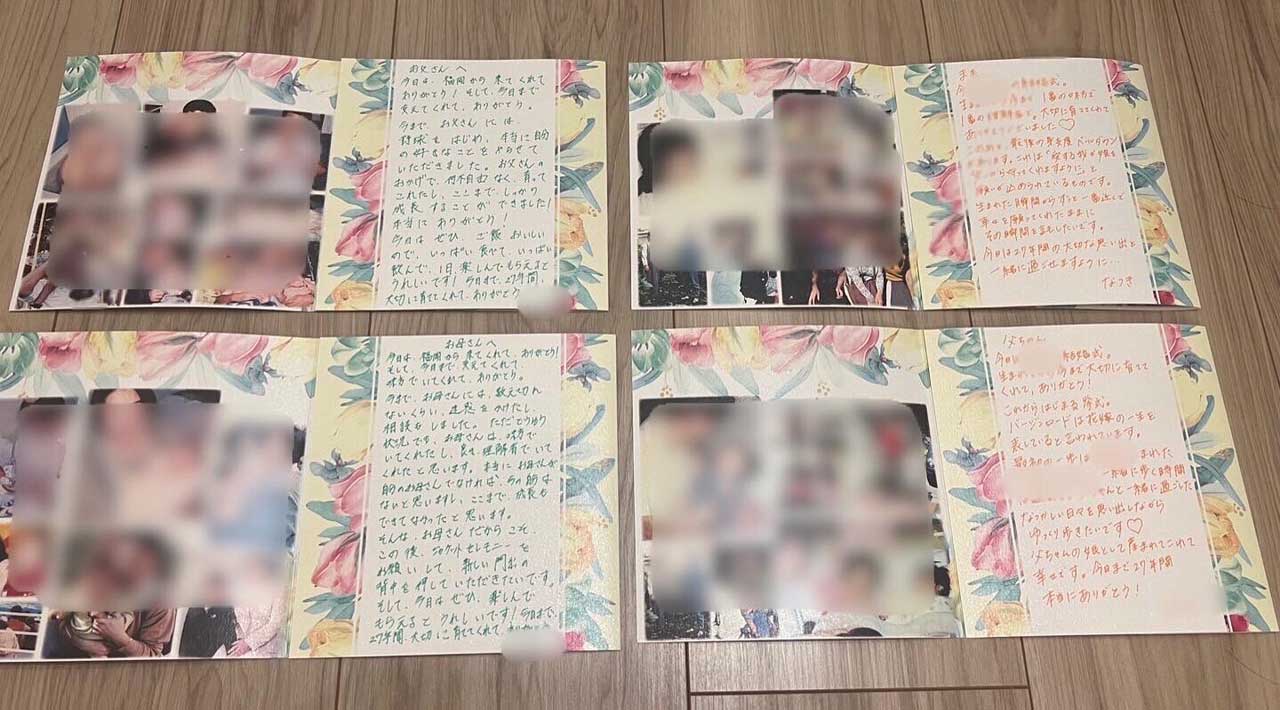 お父さんへ
今日は、福岡から来てくれて
ありがとう！そして、今日まで
支えてくれて、ありがとう。
今まで、お父さんには、
野球をはじめ、本当に
の好きなことをやらせて
いただきました。お父さんの
おかげで、何不自由なく、育って
これたし、ここまで、しっかり
成長することができました！
本当にありがとう！
今日はぜひ、ご飯おいしい
ので、いっぱい食べて、いっぱい
飲んで、1日、楽しんでもらえると
うれしいです！今日まで、27年間、
大切に育ててくれて、ありがとう
お母さんへ
今日は、福岡から来てくれて、ありがとう！
そして、今日まで、支えてくれて、
味方でいてくれて、ありがとう。
今まで、お母さんには、数え切れ
ないくらい、迷惑をかけたし、
相談もしました。ただどうゆう
状況でも、お母さんは、味方で
いてくれたし、良き理解者でいて
くれたと思います。本当にお母さんが
のお母さんでなければ、今の
ないと思いますし、ここまで、成長も
できてなかったと思います。
そんな、お母さんだからこそ、
この後、ジャケットセレモニーを
お願いして、新しい門出の
背中を押していただきたいです。
そして、今日はぜひ、楽しんで
もらえるとうれしいです！今日まで、
27年間、大切に育ててくれて、ありがとう
今
1番の味方で
1番の 。大切に育ててくれて
ありがとうございました♡
最後の身支度ベールダウン
です。これは「愛する我が娘を
から守ってくれますように」と
願いが込められているものです。
生まれた瞬間からずっと一番近くで
幸せを願ってくれたままに
その瞬間を託したいです。
今日は27年間の大切な思い出と
一緒に過ごせますように…
なつき
父ちゃん
今日 結婚式。
今まで大切に育てて
くれて、ありがとう！
これからはじまる挙式。
バージンロードは花嫁の一生を
表していると言われています。
最初の一歩は まれた
一緒に歩く時間
ゃんと一緒に過ごした
なつかしい日々を思い出しながら
ゆっくり歩きたいです♡
父ちゃんの娘として産まれてこれて
幸せです。今日まで27年間
本当にありがとう！